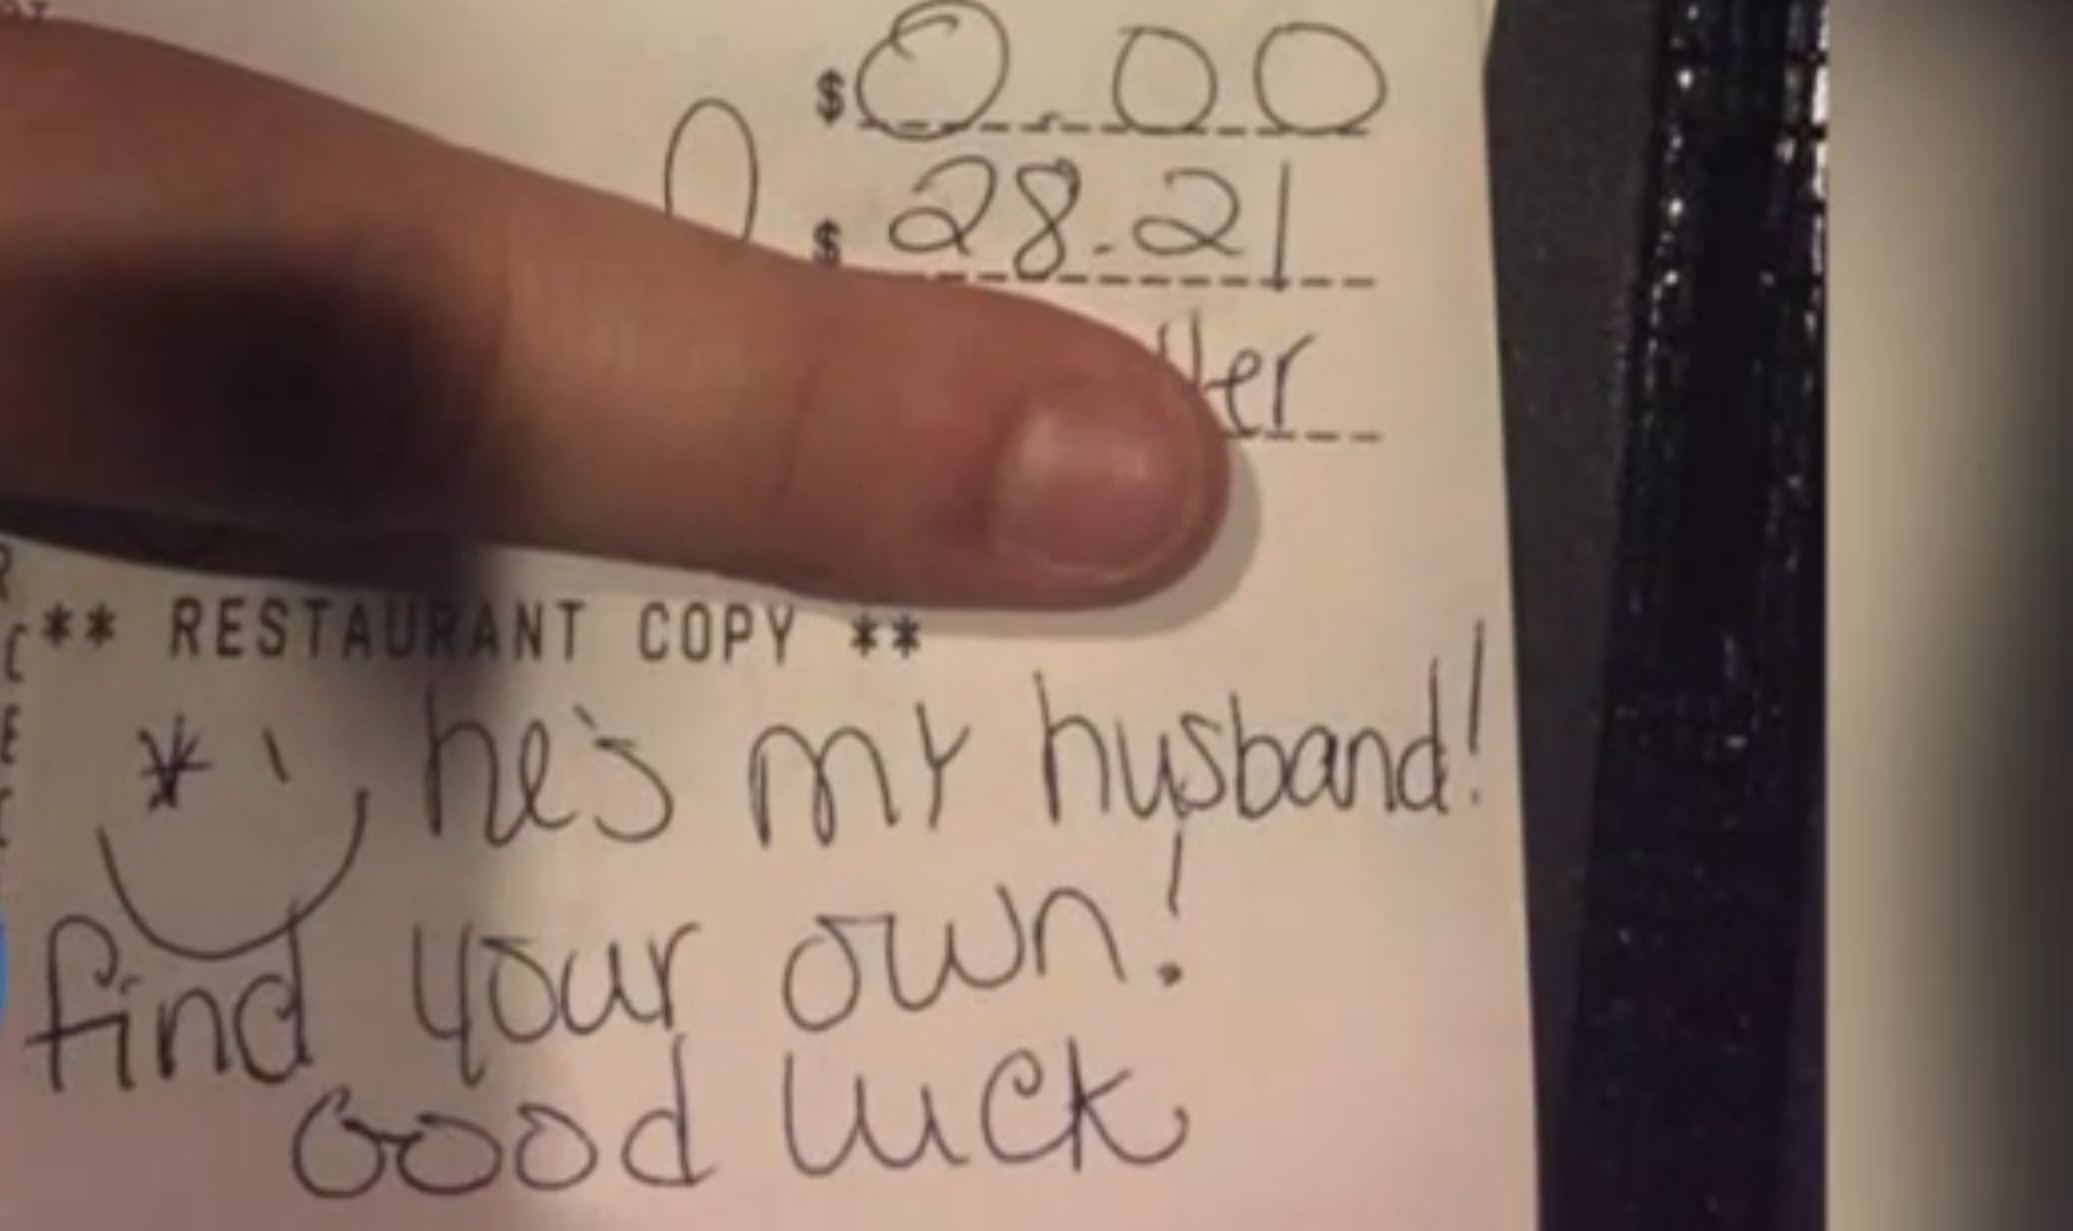 $ 0.00
$ 28.21
** RESTAURANT COPY **
he's my husband!
find your own!
Good luck